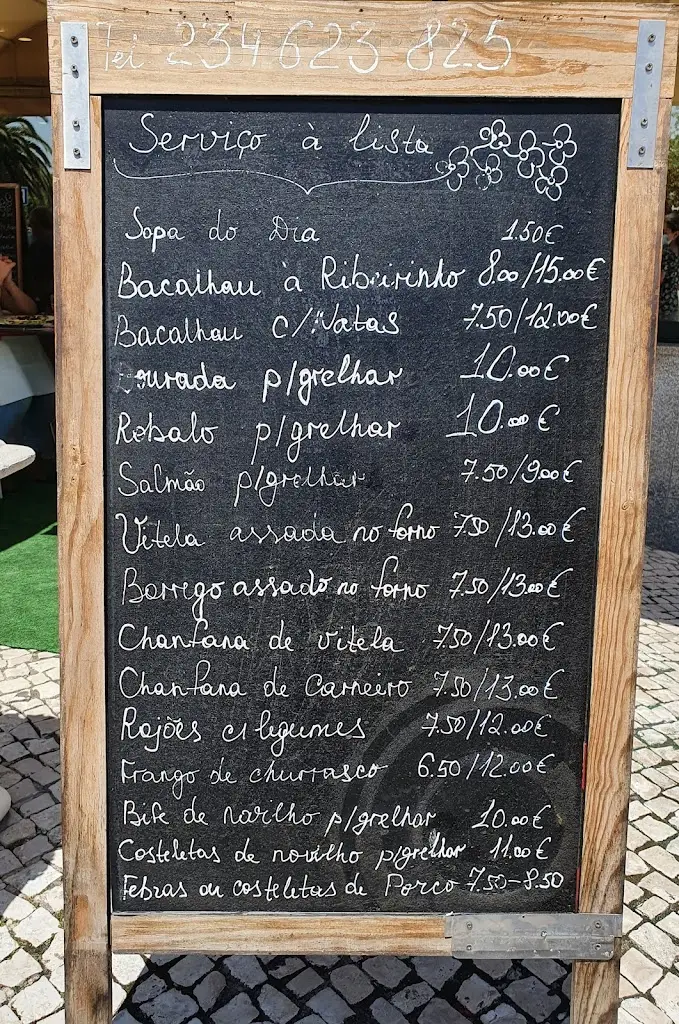 Tel 234 623 825
Serviço à lista
Sopa do Dia 1.50€
Bacalhau à Ribeirinho 8.00/15.00€
Bacalhau c/Natas 7.50/12.00€
Dourada p/grelhar 10.00€
Robalo p/grelhar 10.00€
Salmão p/grelhar 7.50/9.00€
Vitela assada no forno 7.50/13.00€
Borrego assado no forno 7.50/13.00€
Chanfana de vitela 7.50/13.00€
Chanfana de Carneiro 7.50/13.00€
Rojões c/legumes 7.50/12.00€
Frango de churrasco 6.50/12.00€
Bife de novilho p/grelhar 10.00€
Costeletas de novilho p/grelhar 11.00€
Febras ou costeletas de Porco 7.50-8.50